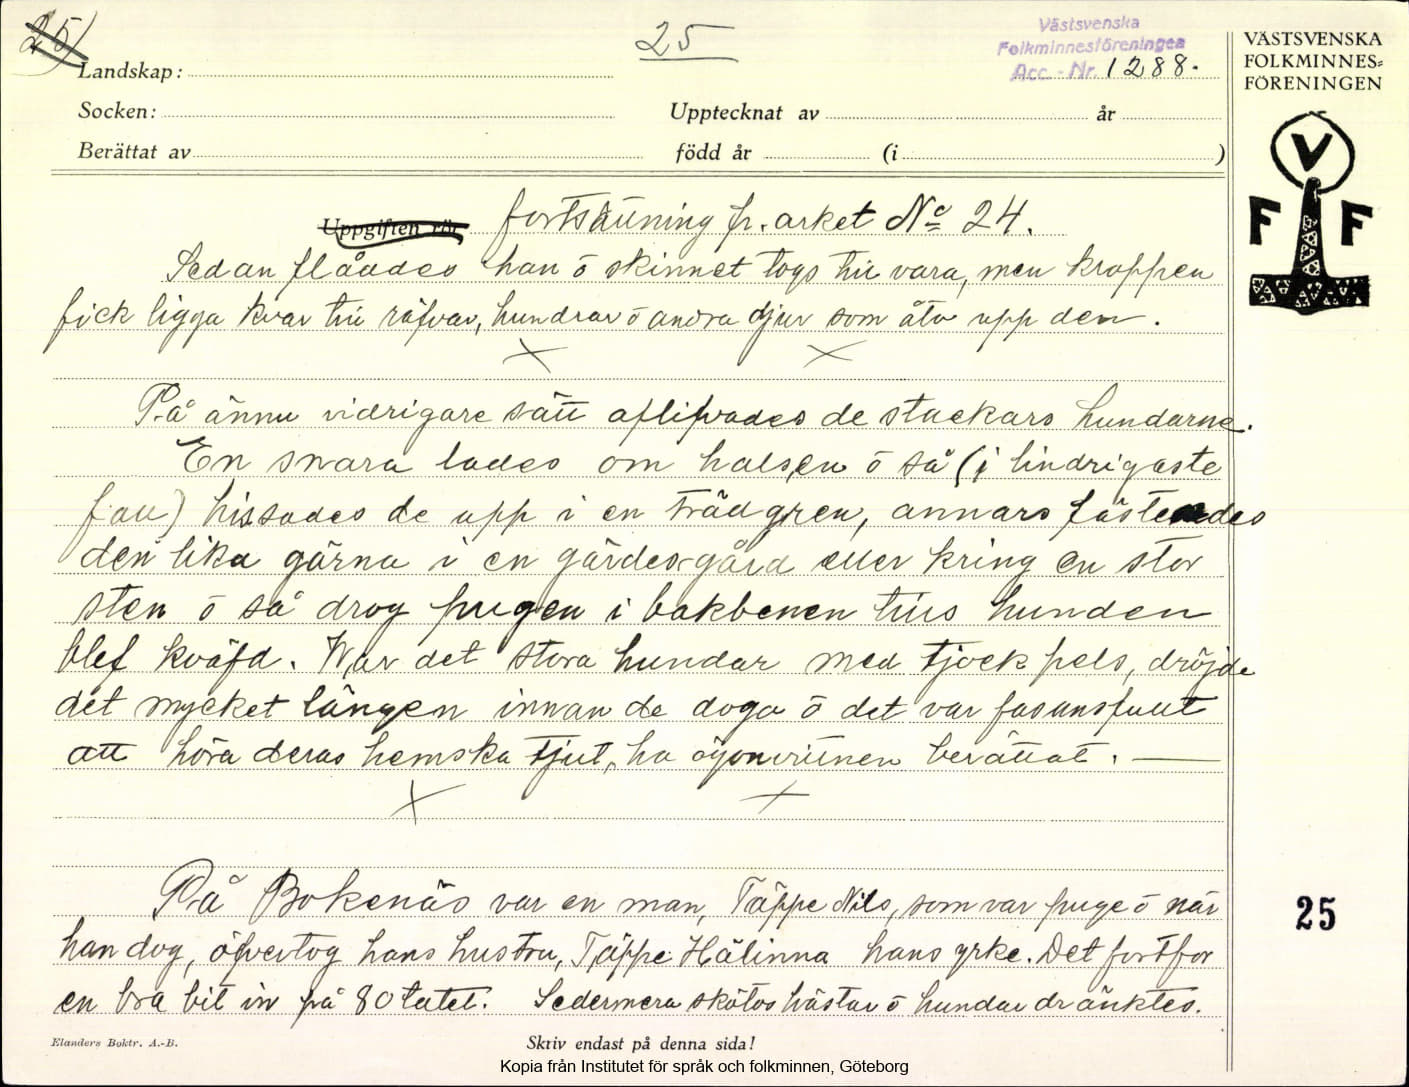 25)
25
Västsvenska
Folkminnesföreningen
Acc.-Nr. 1288.
VÄSTSVENSKA
FOLKMINNES=
FÖRENINGEN
Landskap:
Socken:
Upptecknat av år
Berättat av född år (i )
V
F F
Uppgiften rör fortsättning fr. arket No 24.
Sedan flåddes han ō skinnet togs till vara, men kroppen
fick ligga kvar till räfvar, hundrar ō andra djur som åto upp den.
På ännu vidrigare sätt aflifvades de stackars hundarne.
En snara lades om halsen ō så (i lindrigaste
fall) hissades de upp i en trädgren, annars fästes
den lika gärna i en gärdesgård eller kring en stor
sten ō så drog pugen i bakbenen tills hunden
blef kväfd. War det stora hundar med tjock pels, dröjde
det mycket längen innan de dogo ō det var fasansfullt
att höra deras hemska tjut, ha ögonvittnen berättat. —
På Bokenäs var en man, Täppe Nils, som var puge ō när
han dog, öfvertog hans hustru, Täppe Hälinna hans yrke. Det fortfor
en bra bit in på 80 talet. Sedermera skötos hästar ō hundar dränktes.
25
Elanders Boktr. A.-B.
Skriv endast på denna sida!
Kopia från Institutet för språk och folkminnen, Göteborg